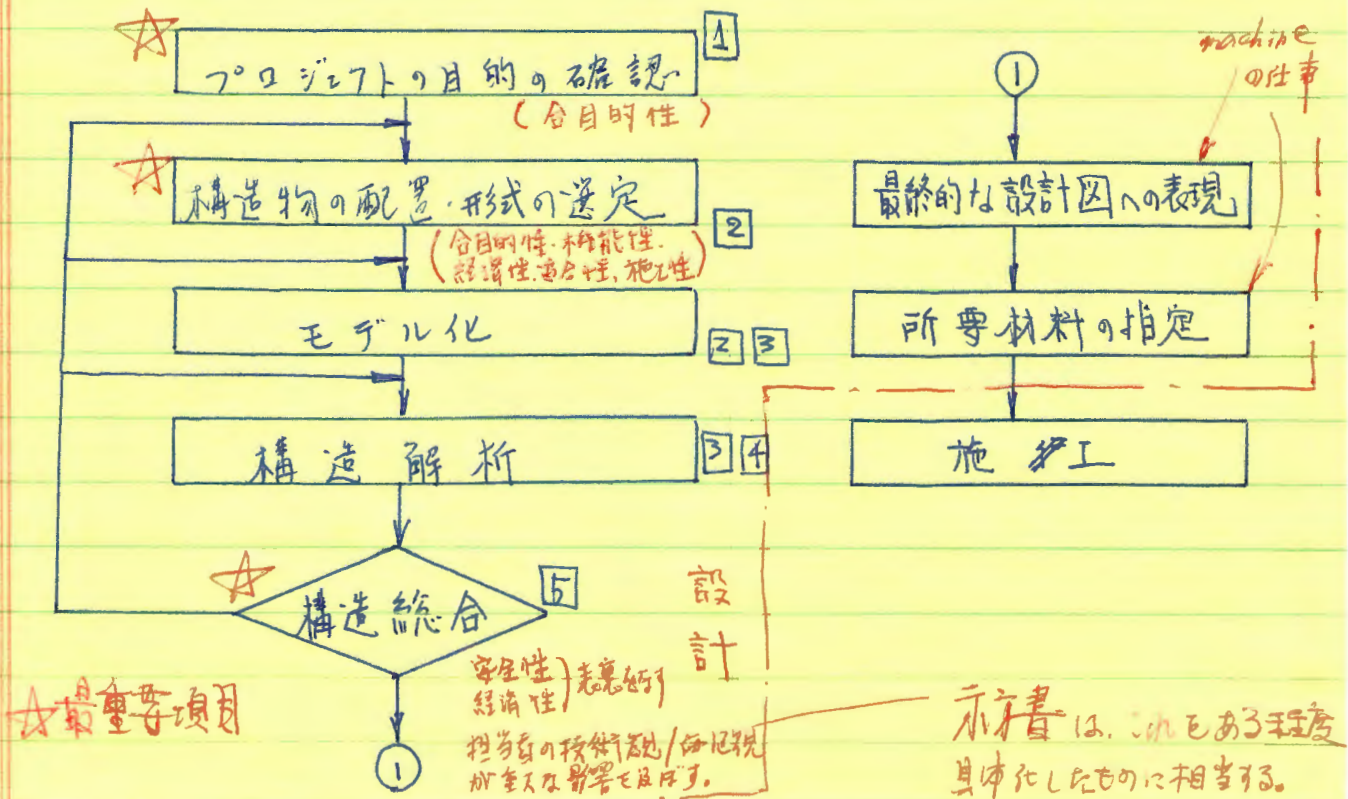 ☆
1
プロジェクトの目的の確認
(合目的性)
☆
構造物の配置・形式の選定
2
(合目的性・機能性・
経済性、適合性、施工性)
モデル化
2 3
構造解析
3 4
☆
構造総合
5
安全性
経済性
} 表裏をなす
担当者の技術観/
が重大な影響を及ぼす。
①
☆最重要項目
設
計
machine
の仕事
①
最終的な設計図への表現
所要材料の指定
施工
示方書は、これをある程度
具体化したものに相当する。